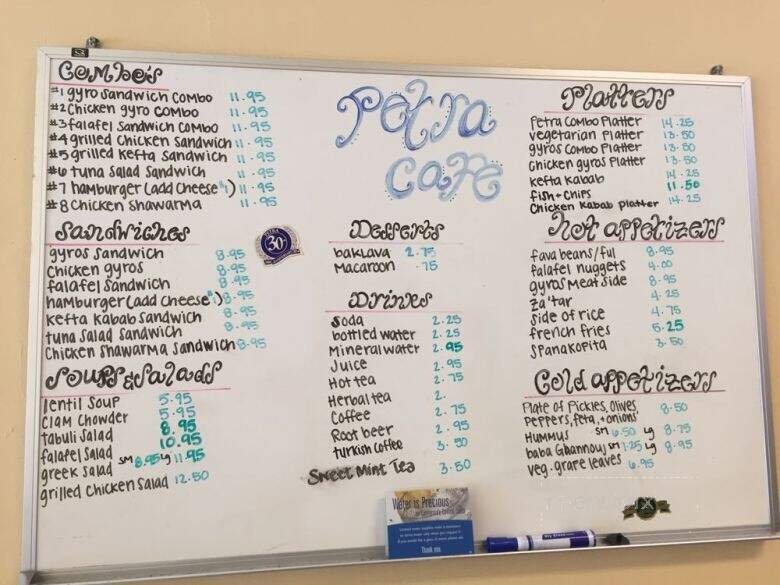 Petra
Cafe
Combo's
#1 gyro sandwich combo 11.95
#2 Chicken gyro combo 11.95
#3 falafel sandwich combo 11.95
#4 grilled chicken sandwich 11.95
#5 grilled kefta sandwich 11.95
#6 tuna salad sandwich 11.95
#7 hamburger (add cheese ) 11.95
#8 Chicken shawarma 11.95
Sandwiches
gyros sandwich 8.95
chicken gyros 8.95
falafel sandwich 8.95
hamburger (add cheese ) 8.95
kefta kabab sandwich 8.95
tuna salad sandwich 8.95
Chicken shawarma sandwich 8.95
Soups & Salads
lentil soup 5.95
Clam chowder 5.95
tabuli salad 8.95
falafel salad 10.95
greek salad sm 8.95 lg 11.95
grilled chicken salad 12.50
30
Desserts
baklava 2.75
macaroon .75
Drinks
Soda 2.25
bottled water 2.25
Mineral water 2.95
Juice 2.95
Hot tea 2.75
Herbal tea 2.
Coffee 2.75
Root beer 2.95
turkish coffee 3.50
Sweet Mint Tea 3.50
Platters
Petra combo Platter 14.25
vegetarian Platter 13.50
gyros combo Platter 13.50
Chicken gyros Platter 13.50
kefta kabab 14.25
fish + chips 11.50
Chicken Kabab platter 14.25
hot appetizers
fava beans/ful 8.95
falafel nuggets 4.00
gyros meat side 8.95
za'tar 4.25
side of rice 4.75
french fries 5.25
spanakopita 3.50
Cold appetizers
Plate of Pickles, Olives,
Peppers, feta, + onions 8.50
Hummus sm 6.50 lg 8.75
baba Ghannouj sm 7.25 lg 8.95
veg. grape leaves 6.95
Water is Precious
Thank you